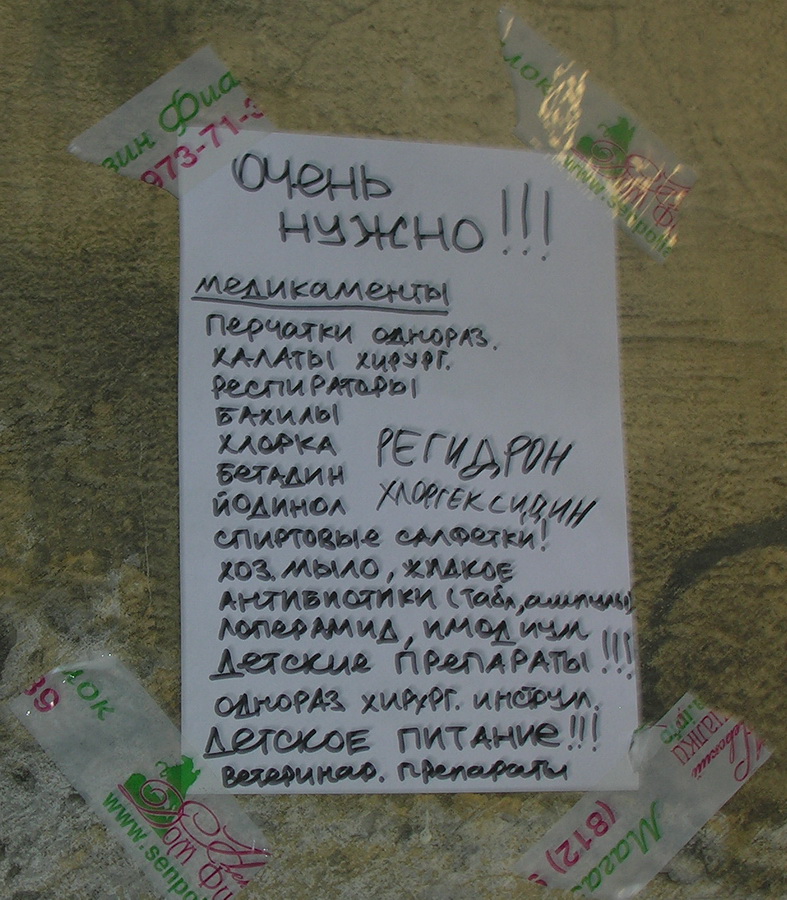 ОЧЕНЬ
НУЖНО!!!
МЕДИКАМЕНТЫ
ПЕРЧАТКИ ОДНОРАЗ.
ХАЛАТЫ ХИРУРГ.
РЕСПИРАТОРЫ
БАХИЛЫ
ХЛОРКА
БЕТАДИН
ЙОДИНОЛ
РЕГИДРОН
ХЛОРГЕКСИДИН
СПИРТОВЫЕ САЛФЕТКИ!
ХОЗ. МЫЛО, ЖИДКОЕ
АНТИБИОТИКИ (табл, ампулы)
ЛОПЕРАМИД, ИМОДИУМ
ДЕТСКИЕ ПРЕПАРАТЫ!!!
ОДНОРАЗ ХИРУРГ. ИНСТРУМ.
ДЕТСКОЕ ПИТАНИЕ!!!
Ветеринар. препараты
зин Фиа
973-71-3
лок
www.senpoli
лок
89
Дом Фи
www.senpo
(812)
Мага